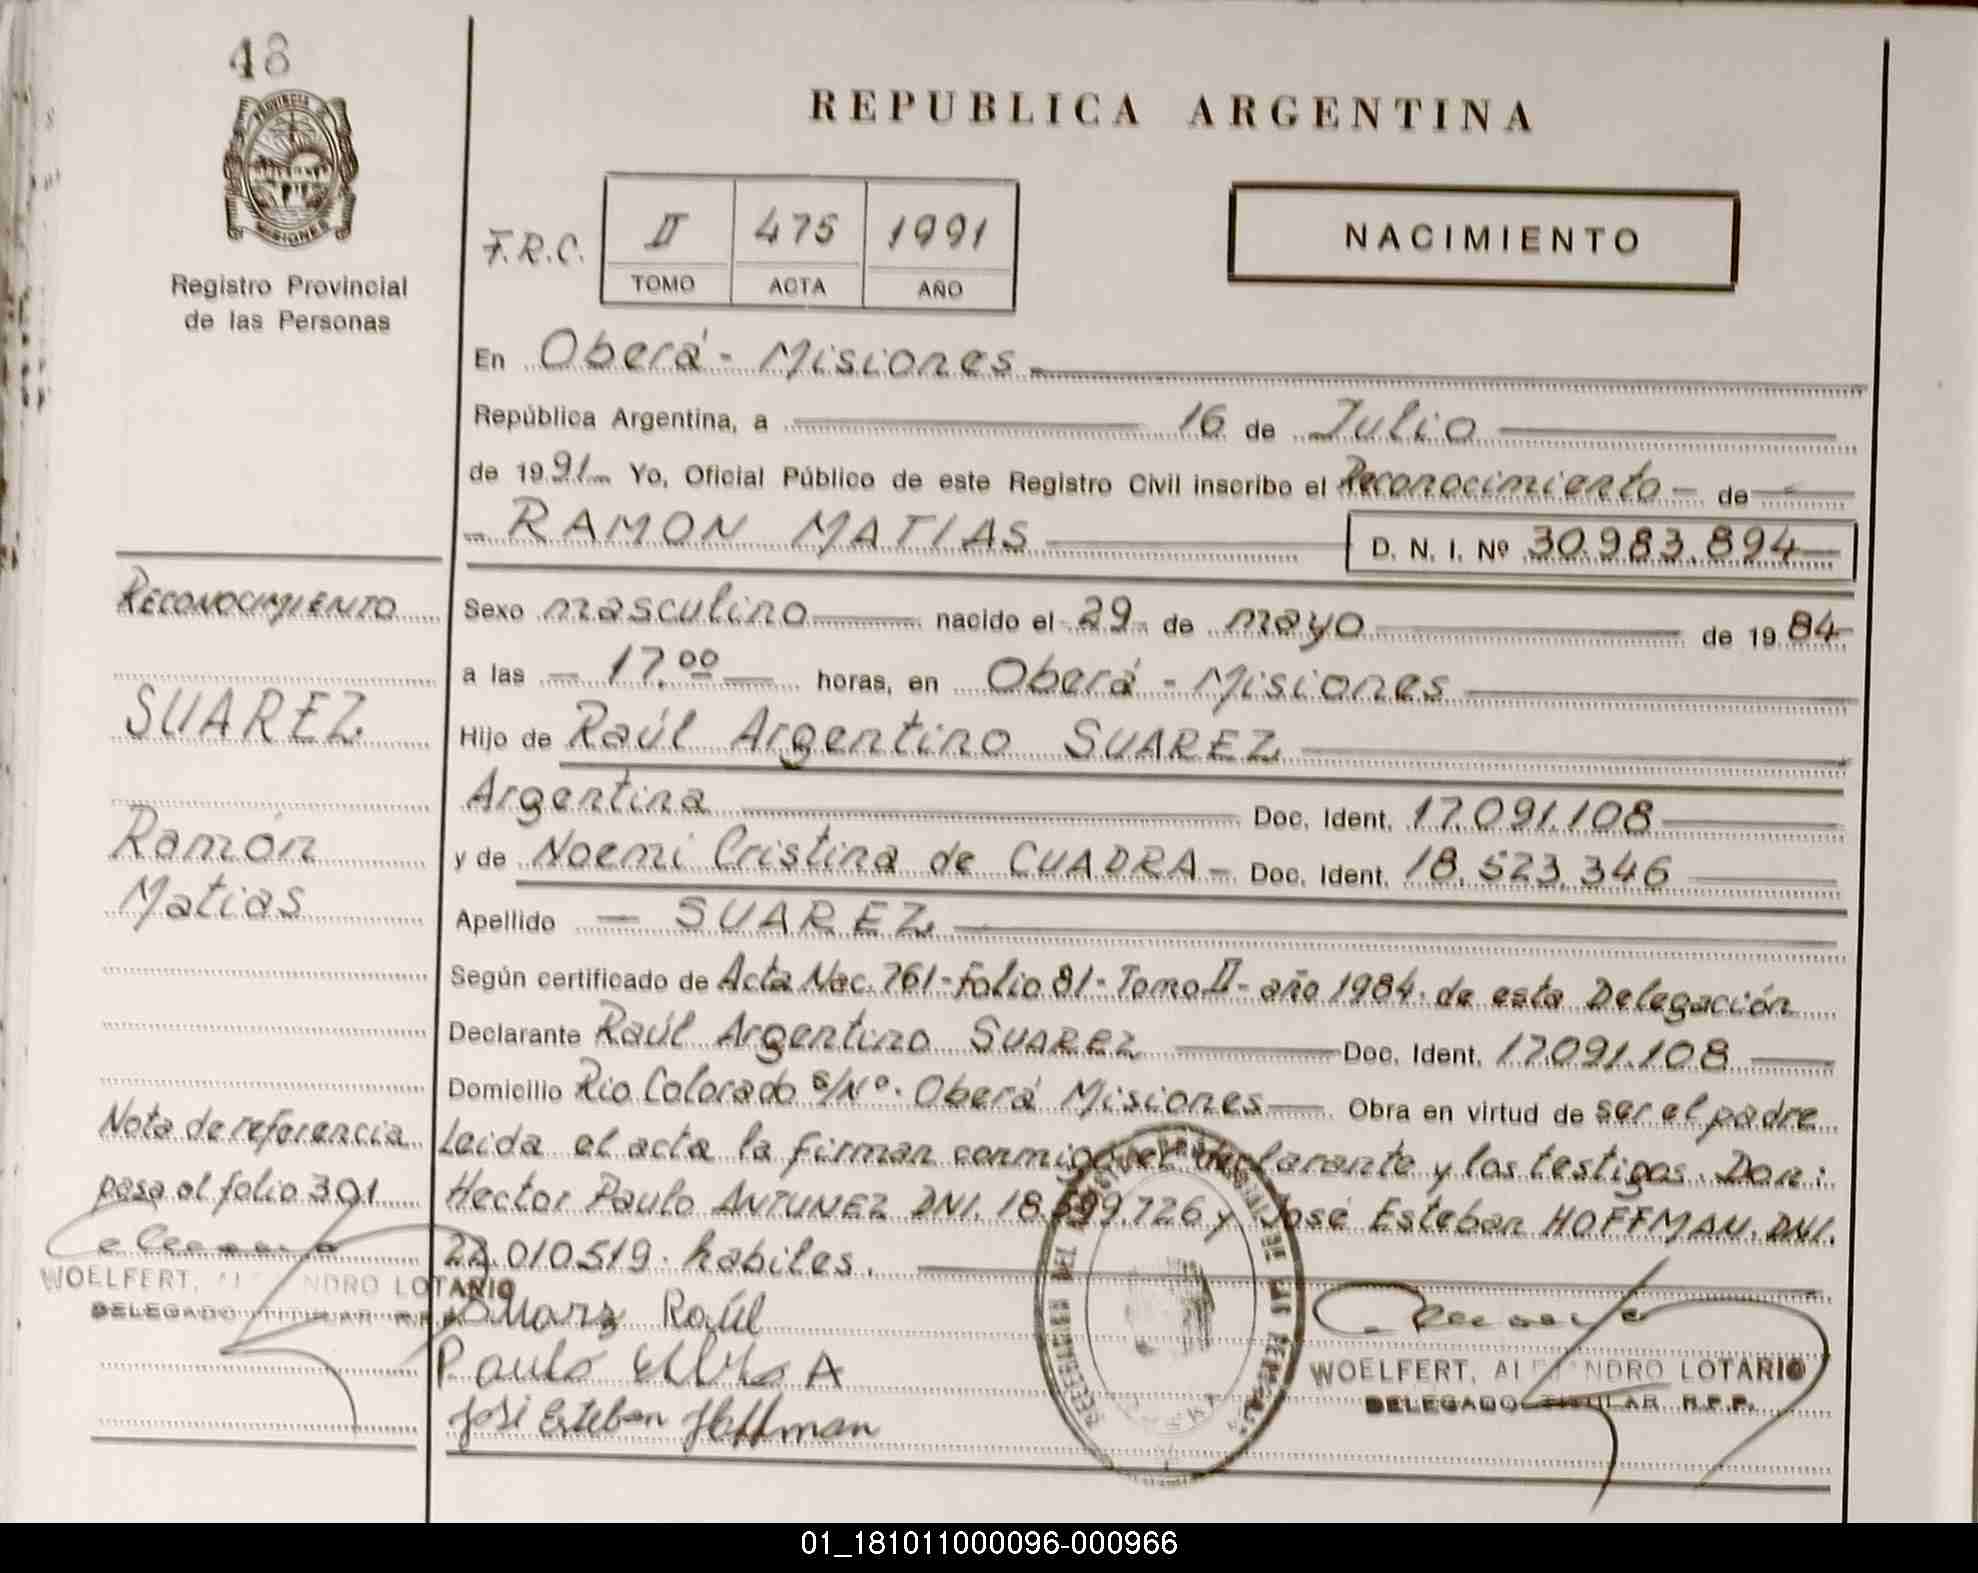 48
PROVINCIA
MISIONES
Registro Provincial
de las Personas
REPUBLICA ARGENTINA
F.R.C. II 475 1991
TOMO ACTA AÑO
NACIMIENTO
En Oberá - Misiones
República Argentina, a 16 de Julio
de 1991 Yo, Oficial Público de este Registro Civil inscribo el Reconocimiento - de
RAMON MATIAS D. N. I. Nº 30.983.894
Sexo masculino nacido el 29 de mayo de 1984
a las 17.00 horas, en Oberá - Misiones
Hijo de Raúl Argentino SUAREZ
Argentina Doc. Ident. 17.091.108
y de Noemi Cristina de CUADRA - Doc. Ident. 18.523.346
Apellido SUAREZ
Según certificado de Acta Nac. 761 - folio 81 - Tomo II - año 1984. de esta Delegación
Declarante Raúl Argentino SUAREZ Doc. Ident. 17.091.108
Domicilio Rio Colorado s/Nº. Oberá Misiones Obra en virtud de ser el padre
Leida el acta la firman conmigo el declarante y los testigos. Don:
Hector Paulo ANTUNEZ DNI. 18. 726 y José Esteban HOFFMAN. DNI.
22.010.519. habiles.
Raúl
Paulo A
José Esteban Hoffman
WOELFERT, ALEJANDRO LOTARIO
DELEGADO TITULAR R.P.P.
RECONOCIMIENTO
SUAREZ
Ramón
Matias
Nota de referencia
pasa al folio 301
WOELFERT, ALEJANDRO LOTARIO
DELEGADO TITULAR R.P.P.
01_181011000096-000966